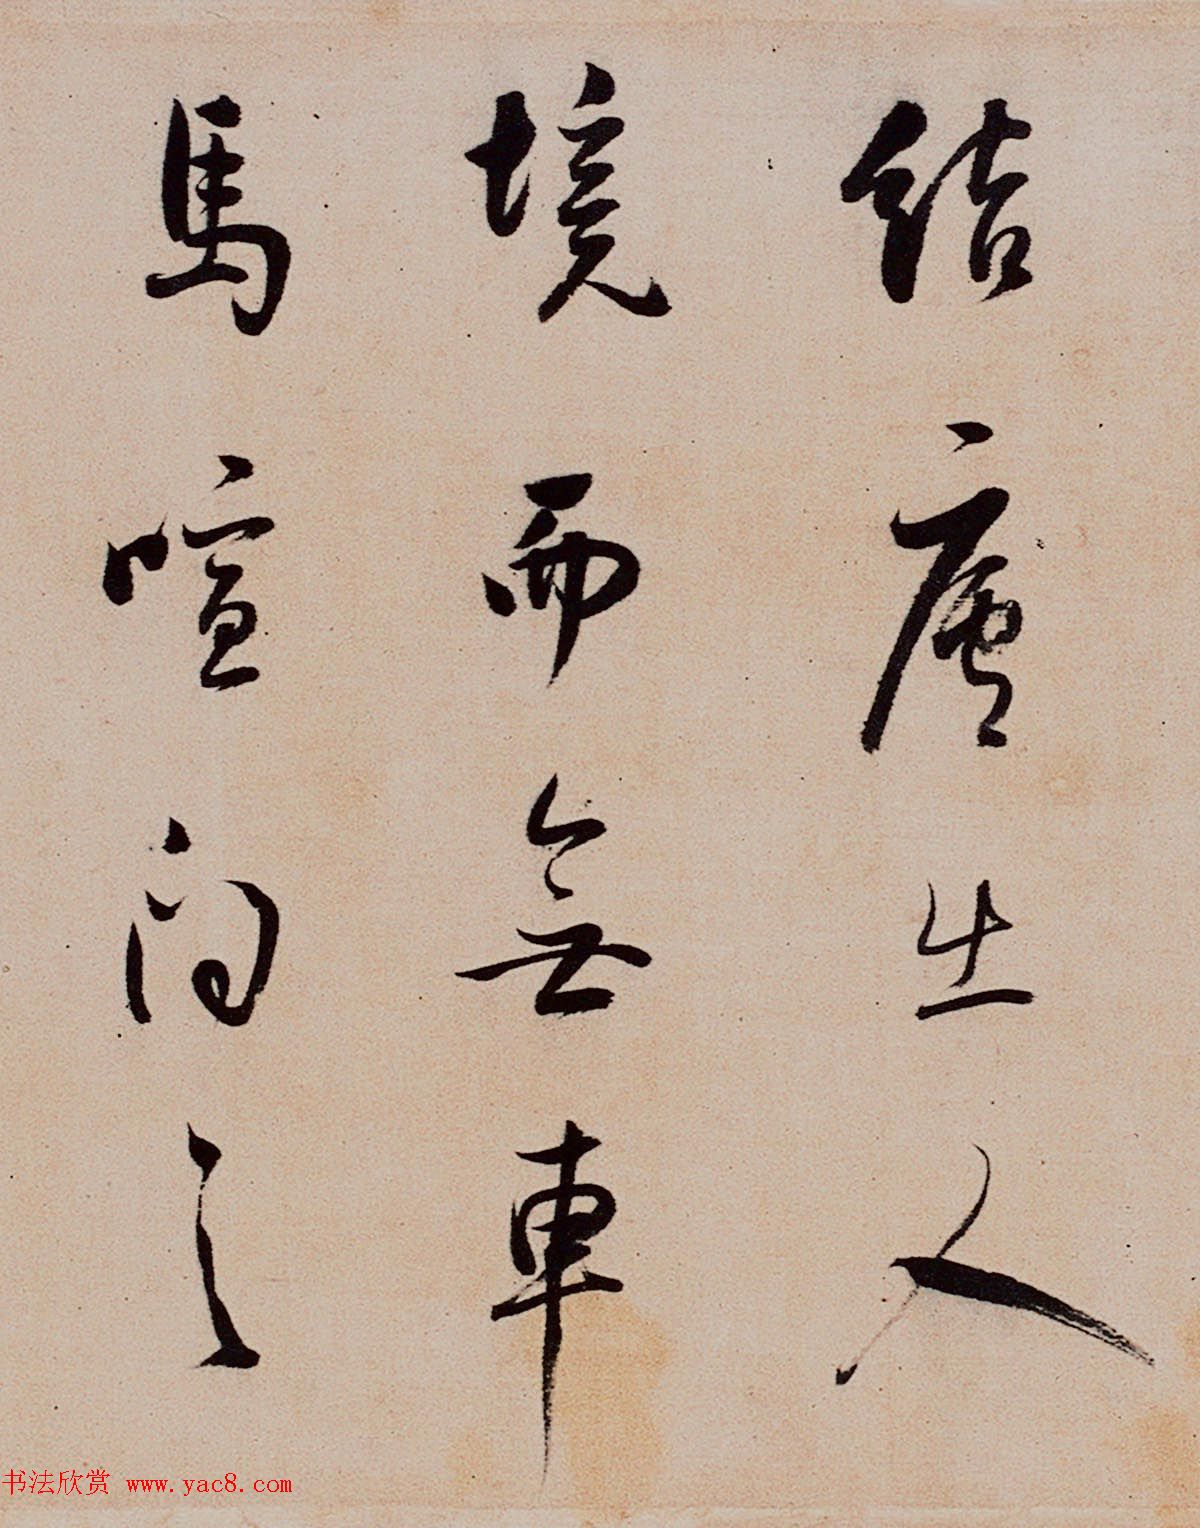 結廬在人
境而無車
馬喧問之
书法欣赏 www.yac8.com